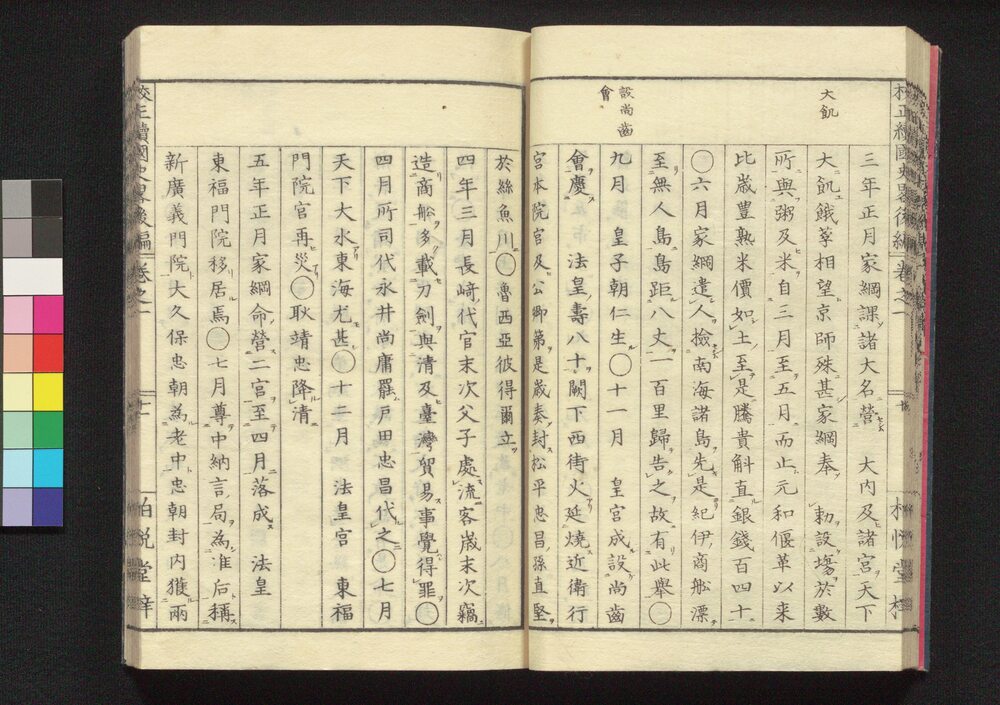 大飢
設尚齒
會
三年正月家綱課諸大名營 大内及諸宮天下
大飢餓莩相望京師殊甚家綱奉 勅設塲於數
所與粥及米自三月至五月而止元和偃革以来
比歳豊熟米價如土至是騰貴斛直銀錢百四十
〇六月家綱遣人撿南海諸島先是紀伊商舩漂
至無人島島距八丈一百里歸告之故有此舉〇
九月 皇子朝仁生〇十一月 皇宮成設尚齒
會慶 法皇壽八十闕下西街火延燒近衛行
宮本院官及公卿第是歳奏封松平忠昌孫直堅
於絲魚川〇魯西亞彼得爾立
四年三月長﨑代官末次父子處流客歳末次竊
造商舩多載刀劍與清及臺灣貿易事覺得罪〇
四月所司代永井尚庸罷戸田忠昌代之〇七月
天下大水東海尤甚〇十二月法皇宮 東福
門院官再災〇耿靖忠降清
五年正月家綱命營二宮至四月落成 法皇
東福門院移居焉〇七月尊中納言局為准后稱
新廣義門院大久保忠朝為老中忠朝封内獲兩
校正續國史畧後編 卷之一
十一
柏悦堂梓